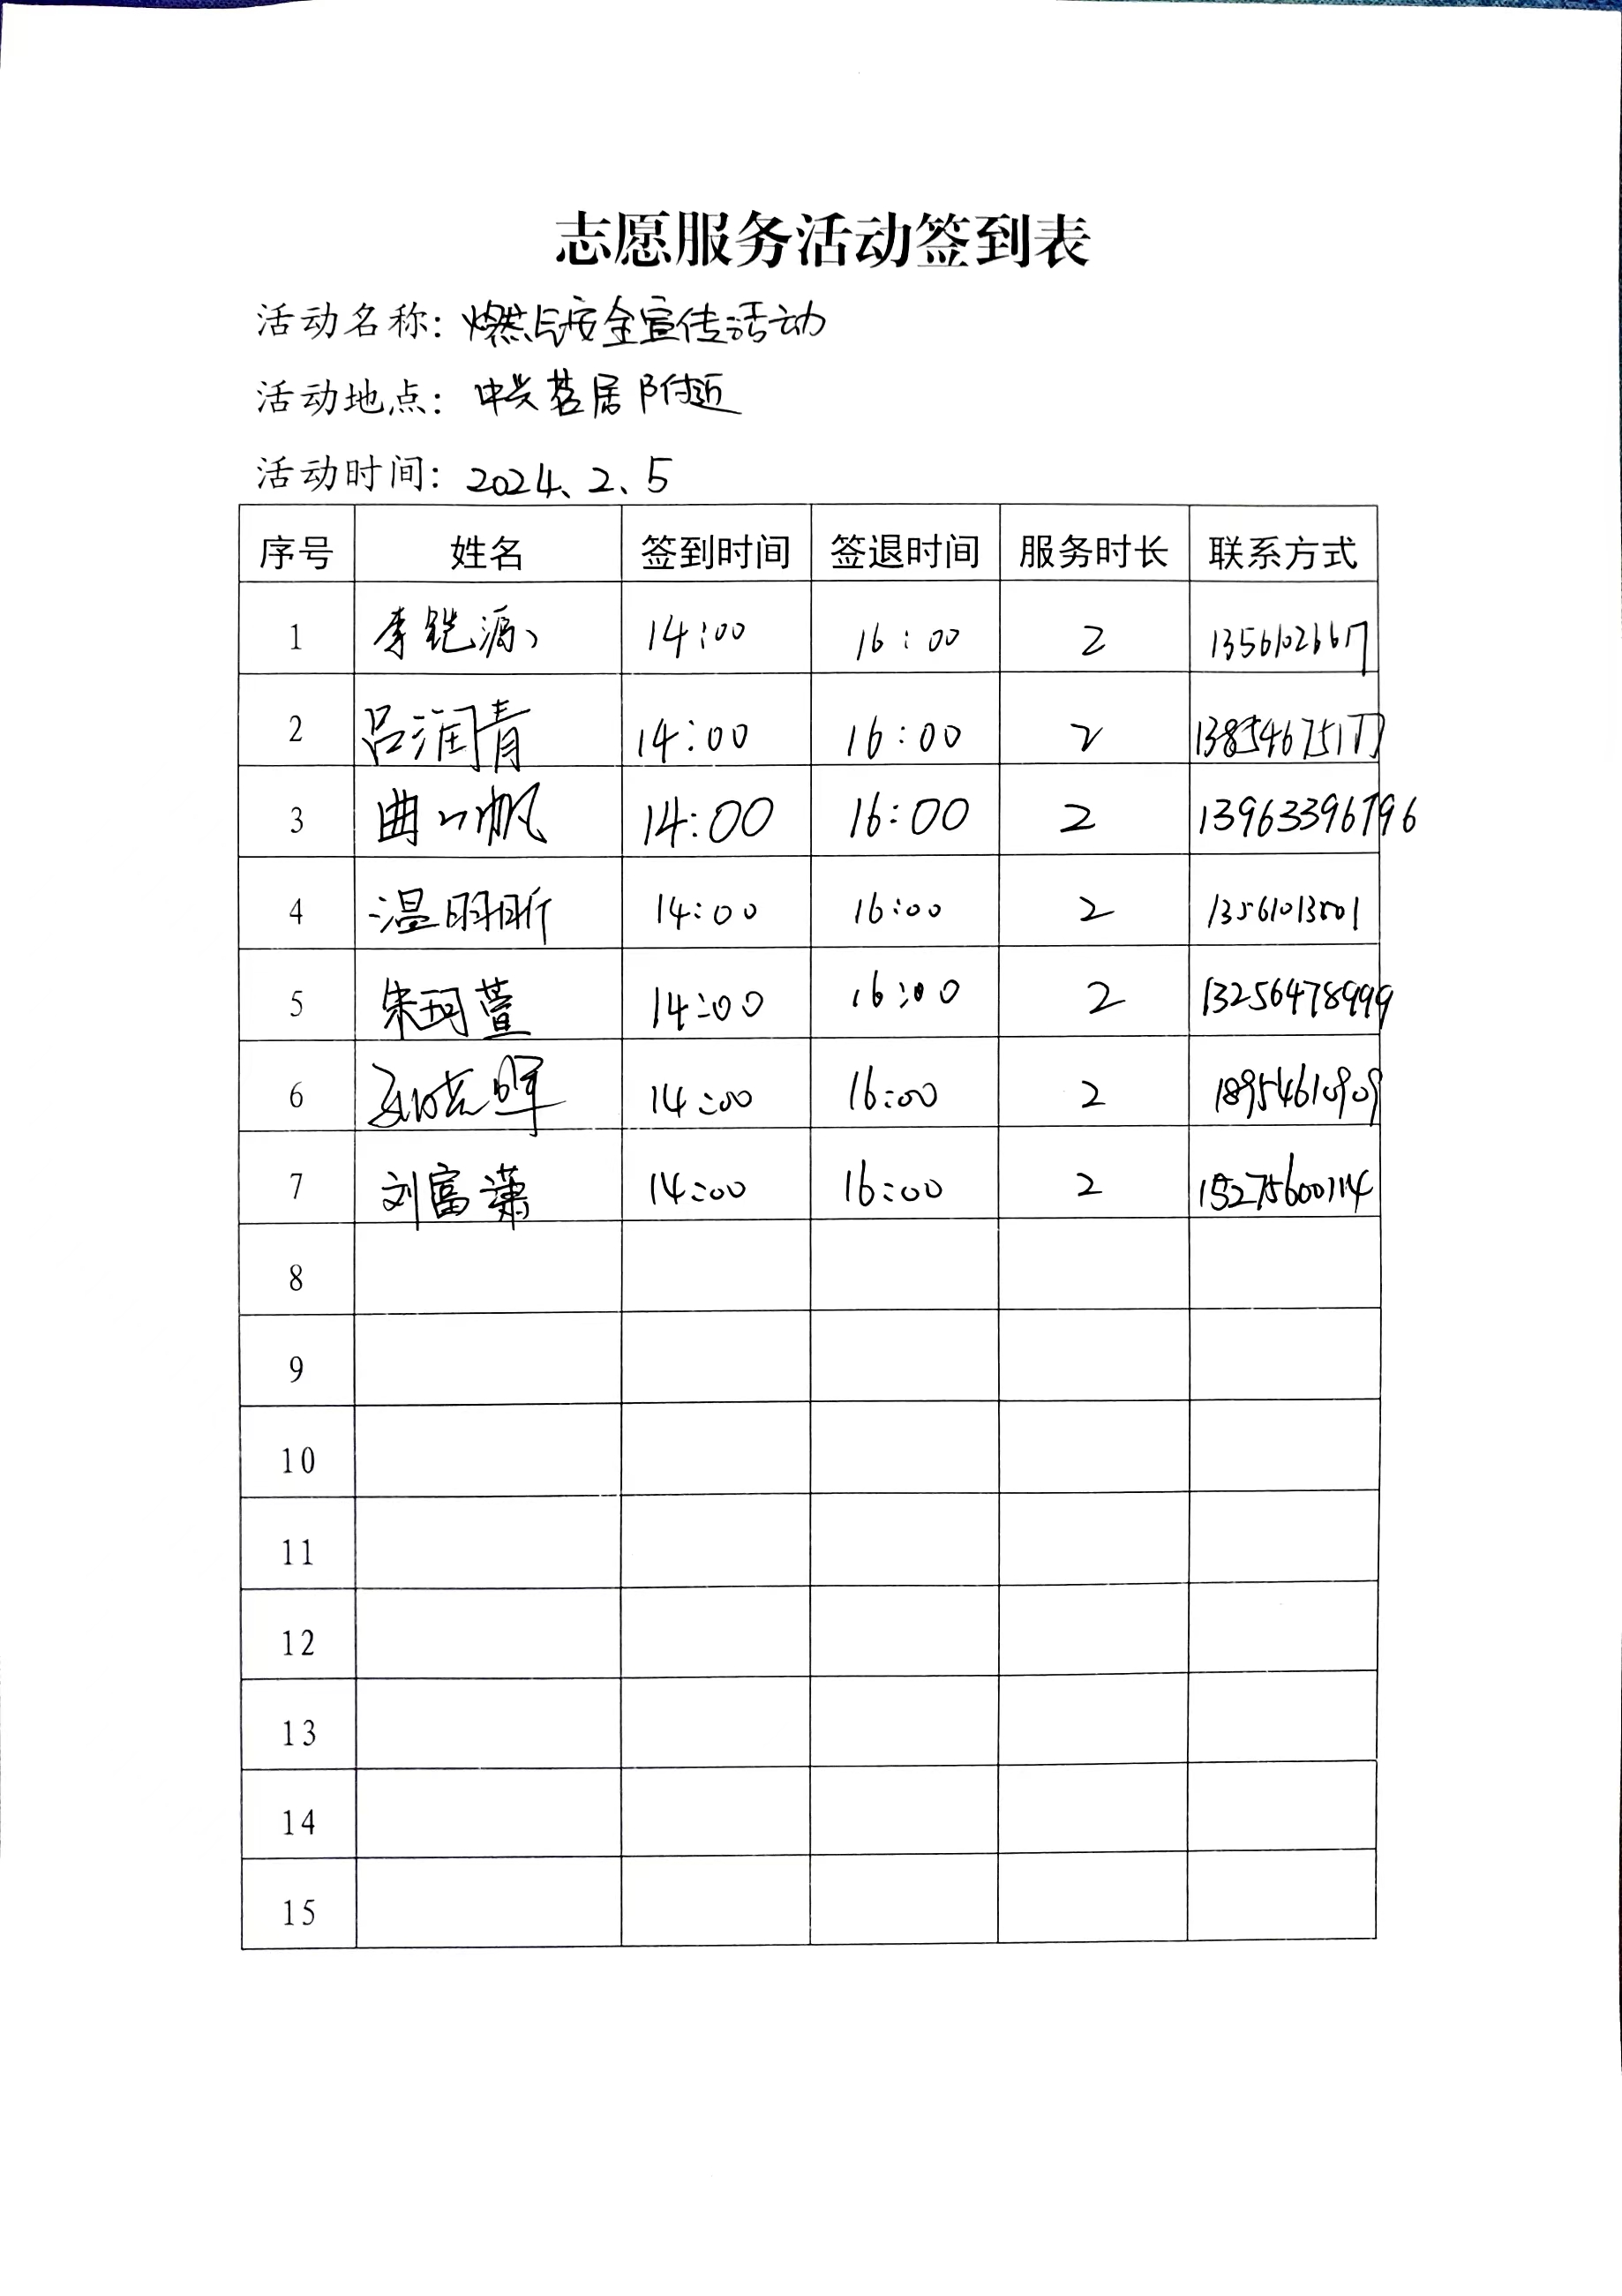 志愿服务活动签到表
活动名称：燃气安全宣传活动
活动地点：中兴茗居附近
活动时间：2024、2、5
序号 姓名 签到时间 签退时间 服务时长 联系方式
1 李铠源 14:00 16:00 2
2 吕润青 14:00 16:00 2
3 曲一帆 14:00 16:00 2 13963396796
4 温玥昕 14:00 16:00 2 13561013001
5 朱珂萱 14:00 16:00 2 13256478999
6 14:00 16:00 2 18954610909
7 刘富潇 14:00 16:00 2 15275600114
8
9
10
11
12
13
14
15